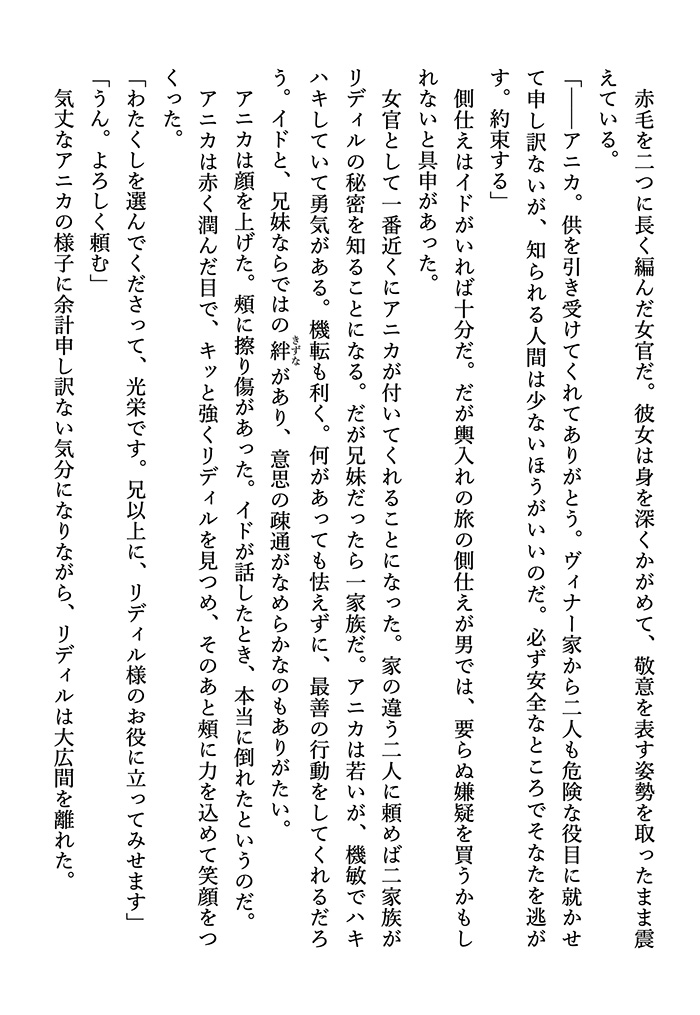 赤毛を二つに長く編んだ女官だ。彼女は身を深くかがめて、敬意を表す姿勢を取ったまま震
えている。
「――アニカ。供を引き受けてくれてありがとう。ヴィナー家から二人も危険な役目に就かせ
て申し訳ないが、知られる人間は少ないほうがいいのだ。必ず安全なところでそなたを逃が
す。約束する」
側仕えはイドがいれば十分だ。だが輿入れの旅の側仕えが男では、要らぬ嫌疑を買うかもし
れないと具申があった。
女官として一番近くにアニカが付いてくれることになった。家の違う二人に頼めば二家族が
リディルの秘密を知ることになる。だが兄妹だったら一家族だ。アニカは若いが、機敏でハキ
ハキしていて勇気がある。機転も利く。何があっても怯えずに、最善の行動をしてくれるだろ
う。イドと、兄妹ならではの絆があり、意思の疎通がなめらかなのもありがたい。
きずな
アニカは顔を上げた。頰に擦り傷があった。イドが話したとき、本当に倒れたというのだ。
アニカは赤く潤んだ目で、キッと強くリディルを見つめ、そのあと頰に力を込めて笑顔をつ
くった。
「わたくしを選んでくださって、光栄です。兄以上に、リディル様のお役に立ってみせます」
「うん。よろしく頼む」
気丈なアニカの様子に余計申し訳ない気分になりながら、リディルは大広間を離れた。